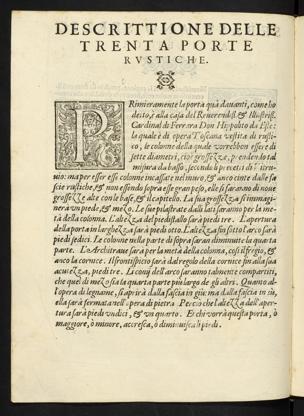 DESCRITTIONE DELLE
TRENTA PORTE
RVSTICHE.
PRimieramente la porta quà dauanti, come ho
detto, è alla casa del Reuerendiß. & Illustriß.
Cardinal di Ferrara Don Hippolito da Este:
la quale è di opera Toscana uestita di rusti-
co, le colonne della quale vorrebbon essere di
sette diametri, cio grossezza, prendendo tal
misura da basso, secondo li precetti di Vitru-
uio: ma per esser esse colonne incassate nel muro, & anco cinte dalle fa
scie rustiche, & non essendo sopra esse gran peso, elle si faranno di noue
grossezze alte con le base, & il capitello. La sua grossezza si immagi-
nerà un piede, & mezo. Le sue pilastrate dalli lati saranno per la me-
tà della colonna. L'altezza del piedistallo sarà piedi tre. L'apertura
della porta in larghezza sarà piedi otto. L'altezza sin sotto l'arco sarà
piedi sedici. Le colonne nella parte di sopra saran diminuite la quarta
parte. L'Architraue sarà per la metà della colonna, cosi il fregio, &
anco la cornice. Il frontispicio sarà dal regolo della cornice sin alla sua
acutezza, piedi tre. Li conij dell'arco saranno talmente compartiti,
che quel di mezo sia la quarta parte piu largo de gli altri. Quanto al-
l'opera di legname, si aprirà dalla fascia in giu: ma dalla fascia in sù,
ella sarà fermata nell'opera di pietra. Percio che l'altezza dell'aper-
tura sarà piedi undici, & un quarto. Et chi vorrà questa porta, ò
maggiore, ò minore, accresca, ò diminuisca li piedi.